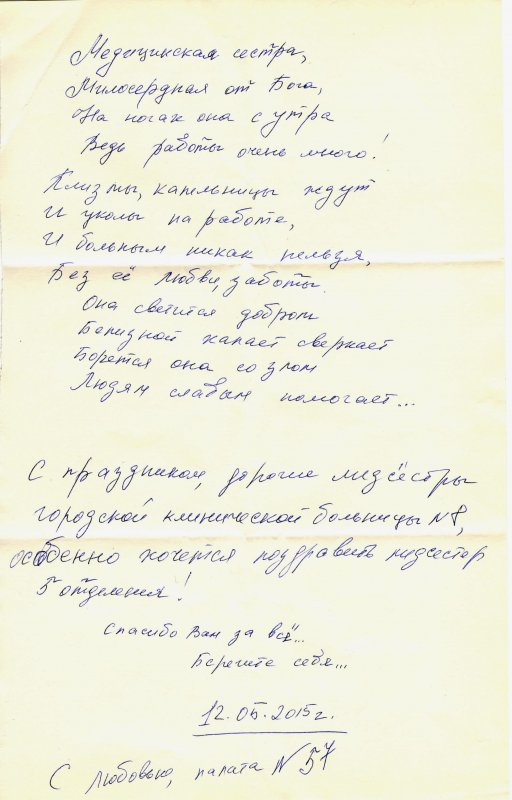 Медицинская сестра,
Милосердная от Бога,
На ногах она с утра
Ведь работы очень много!
Клизмы, капельницы ждут
И уколы на работе,
И больным никак нельзя,
Без её любви, заботы.
Она светится добром
Белизной халат сверкает
Борется она со злом
Людям слабым помогает...
С праздником, дорогие медсёстры
городской клинической больницы N8,
особенно хочется поздравить медсестер
5 отделения!
Спасибо Вам за всё...
Берегите себя...
12.05.2015г.
С любовью, палата N 57